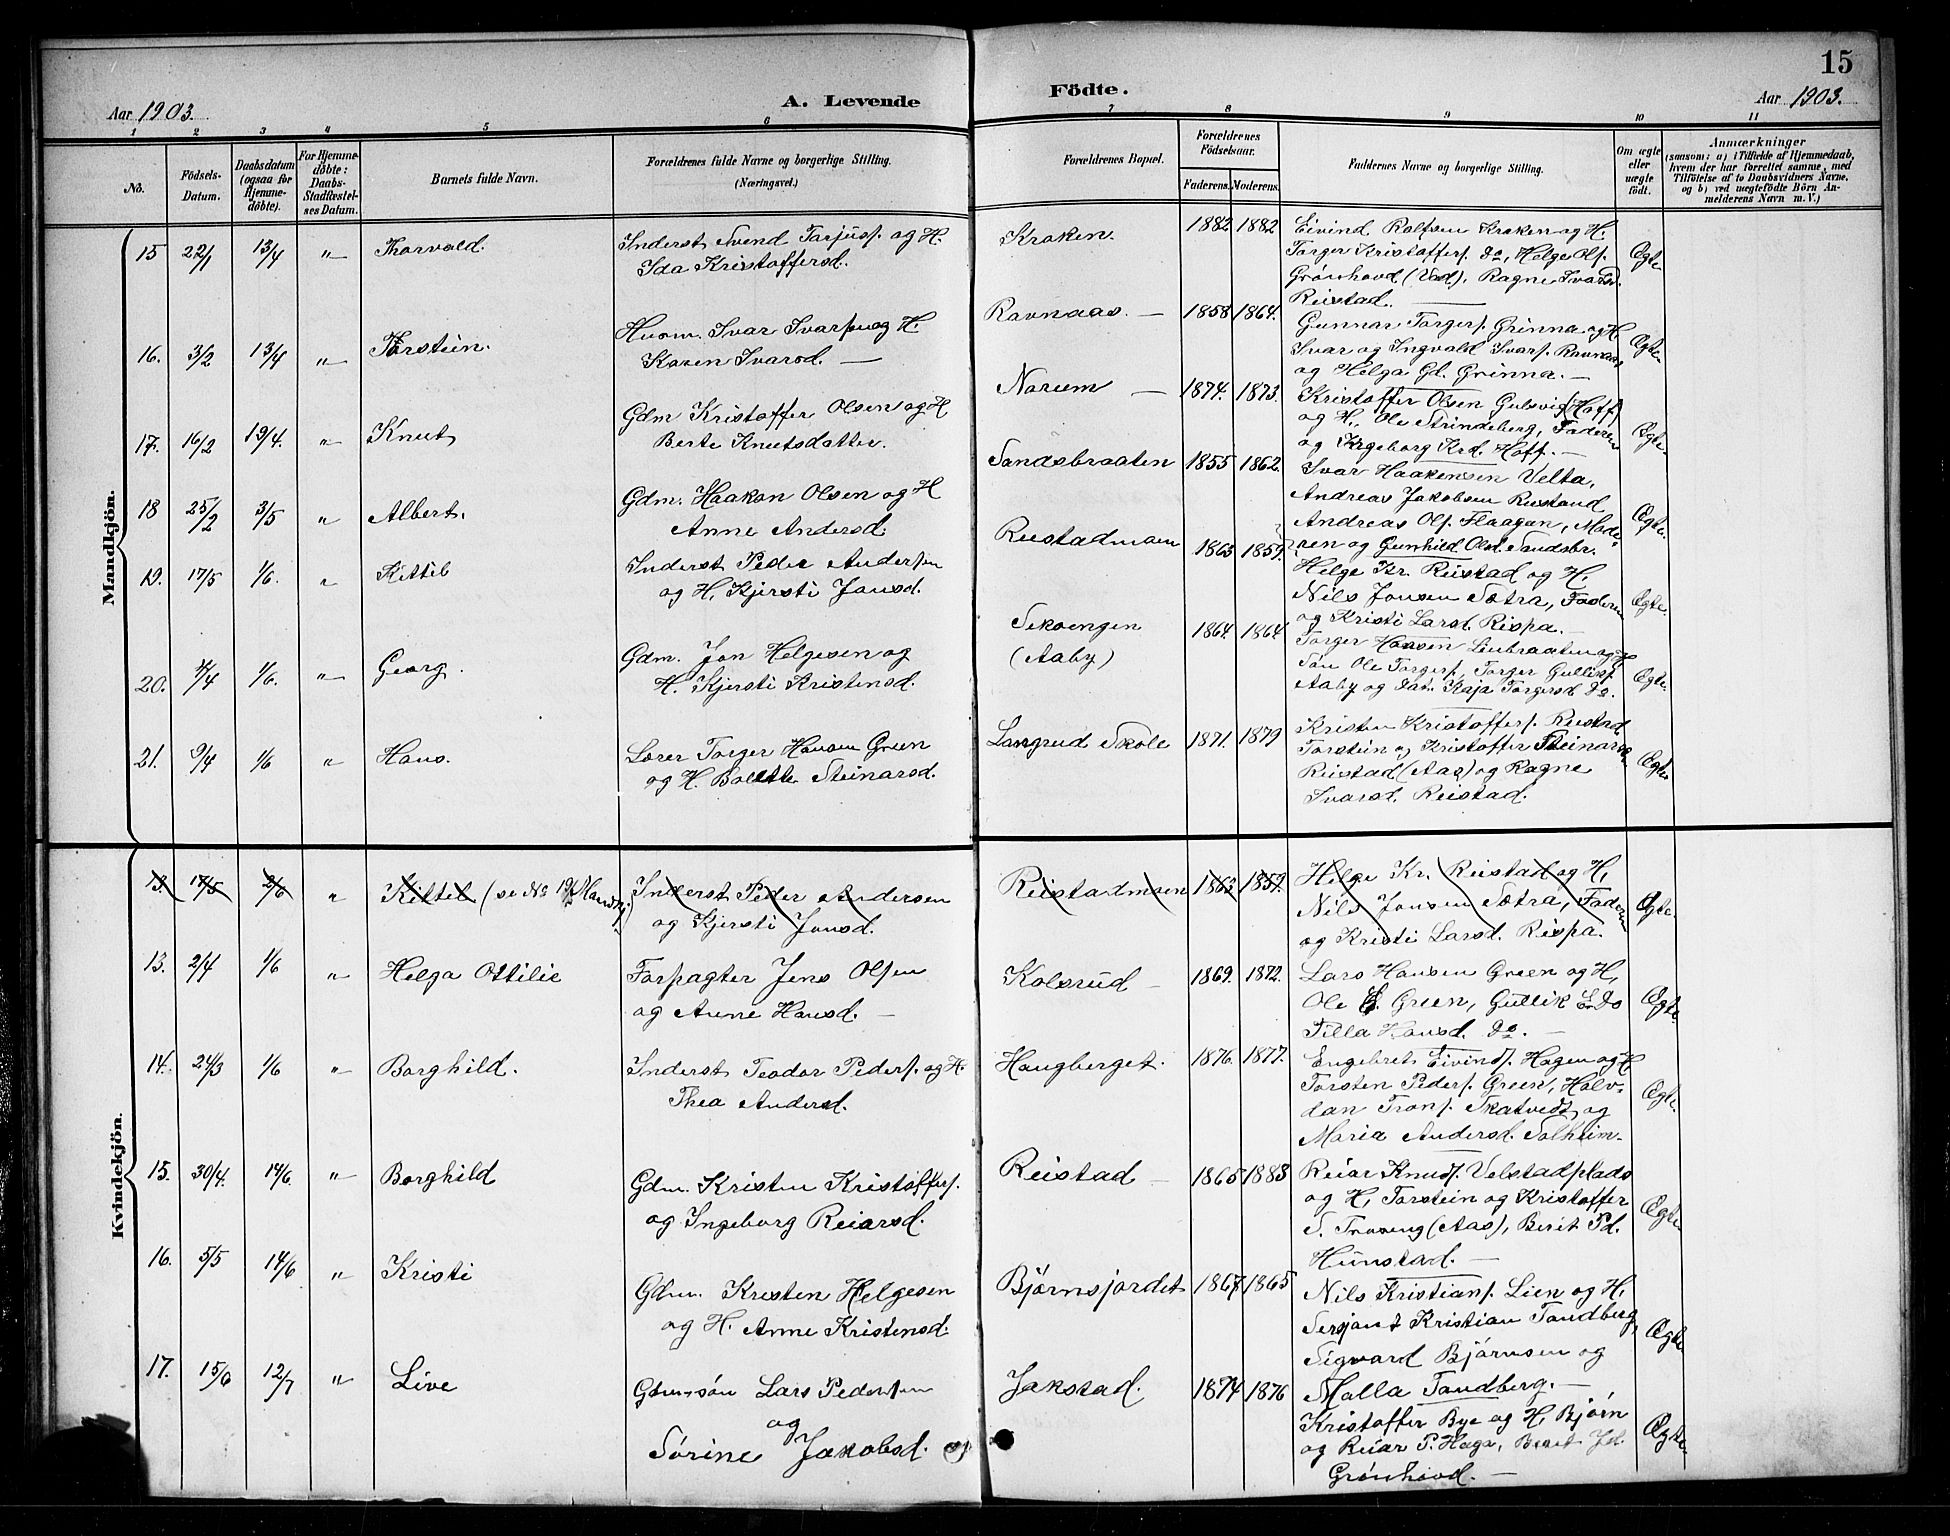 15
Aar 1903.
A. Levende
Födte.
Aar 1903.
1 2 3 4 5 6 7 8 9 10 11
No.
Födsels-Datum.
Daabsdatum (ogsaa for Hjemme-döbte).
For Hjemme-döbte: Daabs-Stadfæstel-ses Datum.
Barnets fulde Navn.
Forældrenes fulde Navne og borgerlige Stilling.
(Næringsvei.)
Forældrenes Bopæl.
Forældrenes Födselsaar.
Faderens. Moderens.
Faddernes Navne og borgerlige Stilling.
Om ægte eller uægte födt.
Anmærkninger
(saasom: a) i Tilfælde af Hjemmedaab,
hvem der har forrettet samme, med
Tilföielse af to Daabsvidners Navne,
og b) ved uægtefödte Börn An-
melderens Navn m. V.)
Mandkjön.
15 22/1 13/4 " Thorvald. Inderst Svend Tarjusf. og H.
Ida Kristoffersd.
Kroken. 1882 1882 Eivind Rolfsen Kroken og H.
Torger Kristoffersf. do, Helge Olsf.
Grönhovd (Vad), Ragne Ivarsd.
Reistad.
Ægte
16. 3/2 13/4 " Torstein. Husm. Ivar Ivarsen og H.
Karen Ivarsd. —
Ravnaas. — 1858 1864. Gunnar Torgersf. Grinna og H
Ivar og Ingvald Ivarsf. Ravnaas,
og Helga Gd. Grinna. —
Ægte
17. 16/2 19/4. " Knut Gdm Kristoffer Olsen og H
Berte Knutsdatter.
Norum — 1874. 1873. Kristoffer Olsen Gulsvig (Hoff)
og H, Ole Strindeberg, Faderen
og Ingeborg Krd. Hoff. —
Ægte
18 25/2 3/5 " Albert. Gdm. Haakon Olsen og H
Anne Andersd.
Sandsbraaten 1855 1862. Ivar Haakensen Velta,
Andreas Jakobsen Rustand
Andreas Olsf. Flaagan, Mode-
ren og Gunhild Olsd. Sandsbr.
Ægte.
19. 17/5 1/6. " Kittil Inderst Peder Andersen
og H, Kjersti Jonsd.
Reistadmoen 1863 1859. Helge Kr. Reistad og H,
Nils Jonsen Sætra, Faderen
og Kristi Larsd. Rispa. —
Ægte.
20. 4/4 1/6. " Georg. Gdm. Jon Helgesen og
H. Kjersti Kristensd.
Sekoengen
(Aaby)
1864. 1864 Torger Hansen Linbraaten og H
Søn Ole Torgersf, Torger Gulliksf
Aaby og Dat. Kaja Torgersd Do.
Ægte.
21. 9/4 1/6 " Hans. Lærer Torger Hansen Green
og H. Bolette Steinarsd.
Langrud Skole 1871. 1879 Kristen Kristoffersf. Reistad
Torstein og Kristoffer Steinarsen
Reistad (Aas) og Ragne
Ivarsd. Reistad.
Ægte
Kvindekjön.
13. 17/5 2/6 " Kittil (se No 19 Mandkj.) Inderst Peder Andersen
og Kjersti Jonsd.
Reistadmoen 1863 1859. Helge Kr. Reistad og H,
Nils Jonsen Sætra, Faderen
og Kristi Larsd. Rispa.
Ægte.
13. 2/4 1/6 " Helga Ottilie Forpagter Jens Olsen
og Anne Hansd. —
Kolsrud — 1869. 1872. Lars Hansen Green og H,
Ole L. Green, Gullik L. Do
Tilla Hansd. Do. —
Ægte.
14. 24/3 1/6 " Borghild. Inderst Teodor Pedersf. og H.
Thea Andersd.
Haugberget. 1876. 1877. Engebret Eivindsf. Hagen og H
Torsten Pedersf. Green, Halv-
dan Tronsf. Skatvedt og
Maria Andersd. Solheim.
Ægte.
15. 30/4. 14/6. " Borghild Gdm. Kristen Kristoffersf.
og Ingeborg Reiarsd.
Reistad — 1865 1883 Reiar Knudsf. Velstadplads
og H, Torstein og Kristoffer
S. Troseng (Aas), Berit Pd.
Hunstad. —
Ægte
16. 5/5 14/6 " Kristi Gdm. Kresten Helgesen
og H. Anne Kristensd.
Bjørnsjordet 1867 1865 Nils Kristiansf. Lien og H,
Sersjant Kristian Tandberg,
Sigvard Bjørnsen og
Malla Tandberg. —
Ægte
17. 15/6 12/7 " Live Gdm.søn Lars Pedersen
og
Sørine Jakobsd.
Jakstad. 1874 1876 Kristoffer Bye og H, Bjørn
og Reiar P. Haga, Berit Jd.
Grønhovd. —
Ægte.